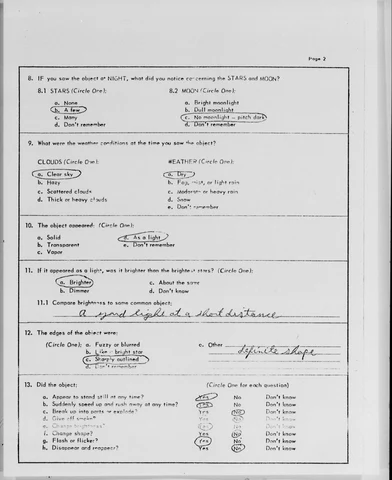 Page 2
8. IF you saw the object at NIGHT, what did you notice concerning the STARS and MOON?
8.1 STARS (Circle One): 8.2 MOON (Circle One):
a. None a. Bright moonlight
b. A few b. Dull moonlight
c. Many c. No moonlight — pitch dark
d. Don't remember d. Don't remember
9. What were the weather conditions at the time you saw the object?
CLOUDS (Circle One): WEATHER (Circle One):
a. Clear sky a. Dry
b. Hazy b. Fog, mist, or light rain
c. Scattered clouds c. Moderate or heavy rain
d. Thick or heavy clouds d. Snow
e. Don't remember
10. The object appeared: (Circle One):
a. Solid d. As a light
b. Transparent e. Don't remember
c. Vapor
11. If it appeared as a light, was it brighter than the brightest stars? (Circle One):
a. Brighter c. About the same
b. Dimmer d. Don't know
11.1 Compare brightness to some common object:
A yard light at a short distance
12. The edges of the object were:
(Circle One): a. Fuzzy or blurred e. Other definite shape
b. Like a bright star
c. Sharply outlined
d. Don't remember
13. Did the object: (Circle One for each question)
a. Appear to stand still at any time? Yes No Don't know
b. Suddenly speed up and rush away at any time? Yes No Don't know
c. Break up into parts or explode? Yes No Don't know
d. Give off smoke? Yes No Don't know
e. Change brightness? Yes No Don't know
f. Change shape? Yes No Don't know
g. Flash or flicker? Yes No Don't know
h. Disappear and reappear? Yes No Don't know